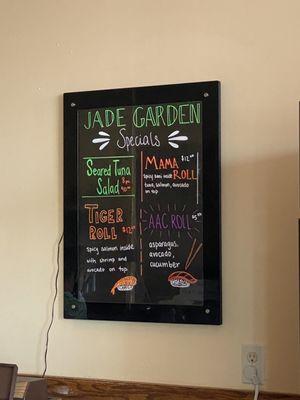 JADE GARDEN
Specials
Seared Tuna
Salad
MAMA $12.00
ROLL
spicy tuna inside
tuna, salmon, avocado
on top
TIGER
ROLL $12.00
spicy salmon inside
with shrimp and
avocado on top
AAC ROLL
asparagus,
avocado,
cucumber